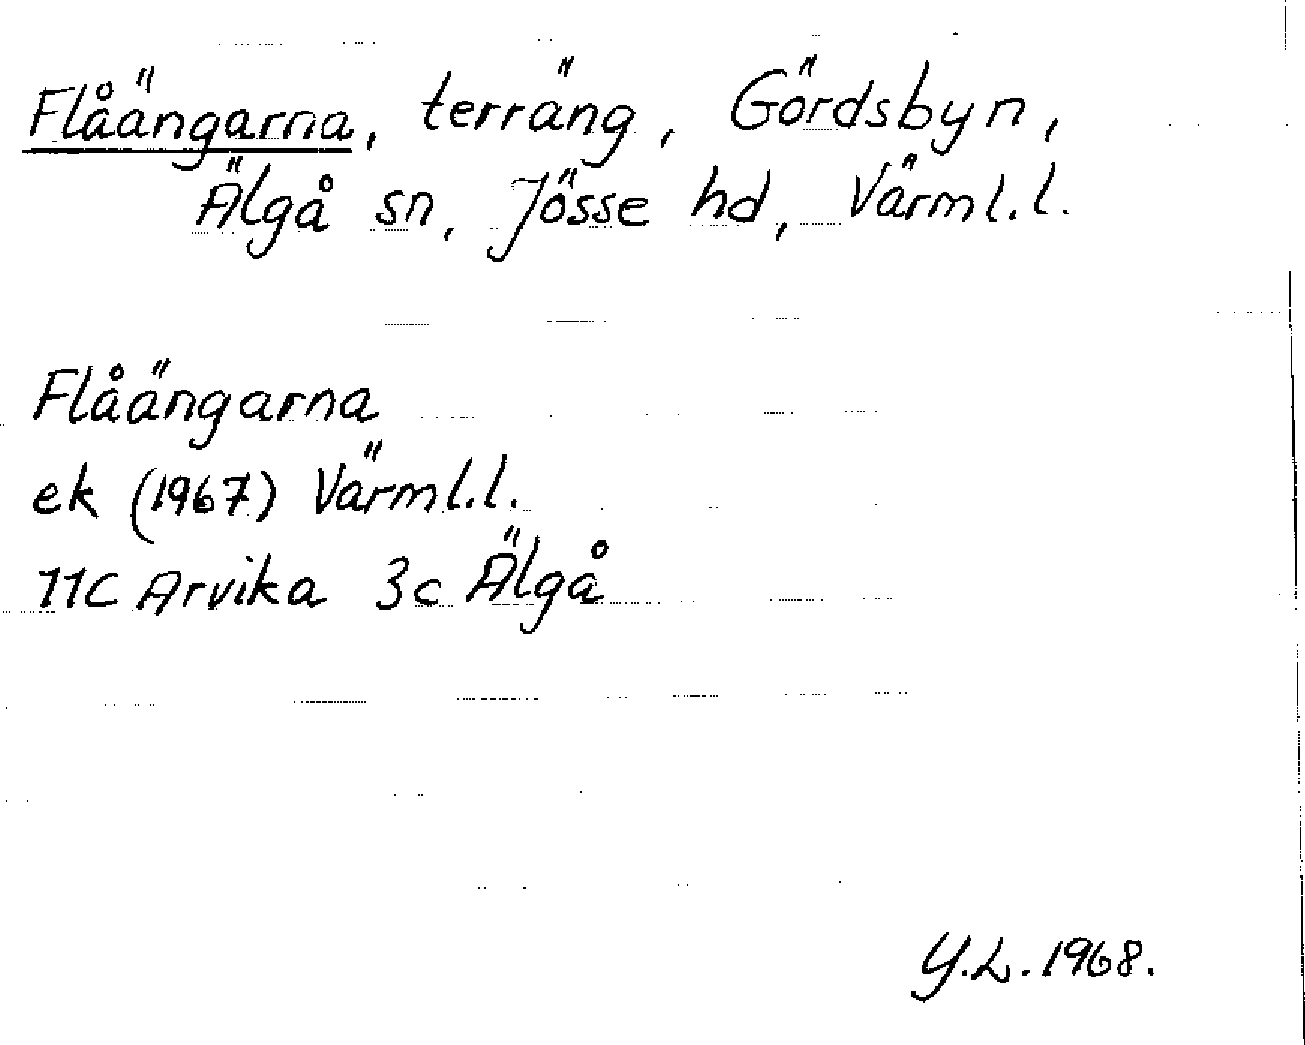 Flåängarna, terräng, Gördsbyn,
Älgå sn, Jösse hd, Värml.l.
Flåängarna
ek (1967) Värml.l.
11C Arvika 3c Älgå
Y.L. 1968.